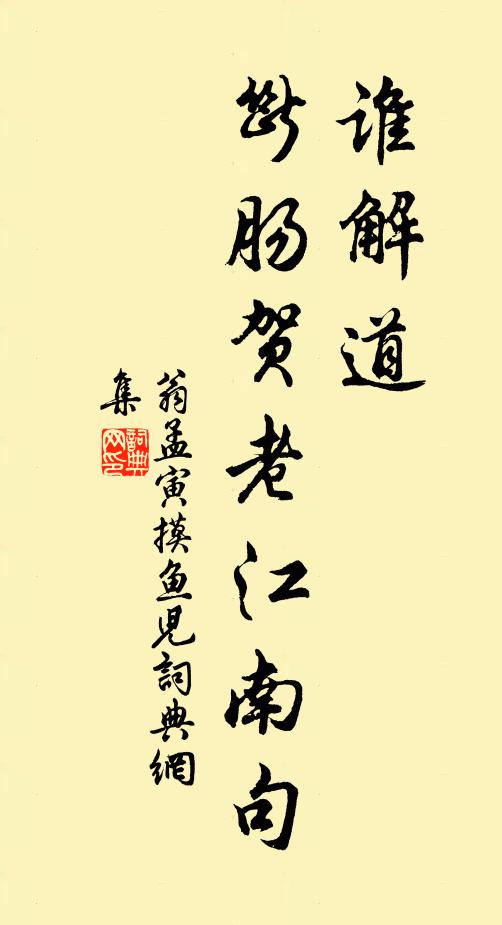 谁解道
断肠贺老江南句
翁孟寅摸鱼儿詞典網
集
詞典
网印